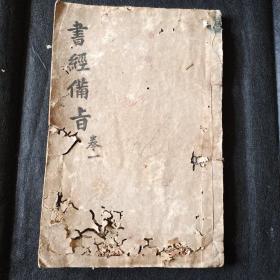 書經備旨
卷一